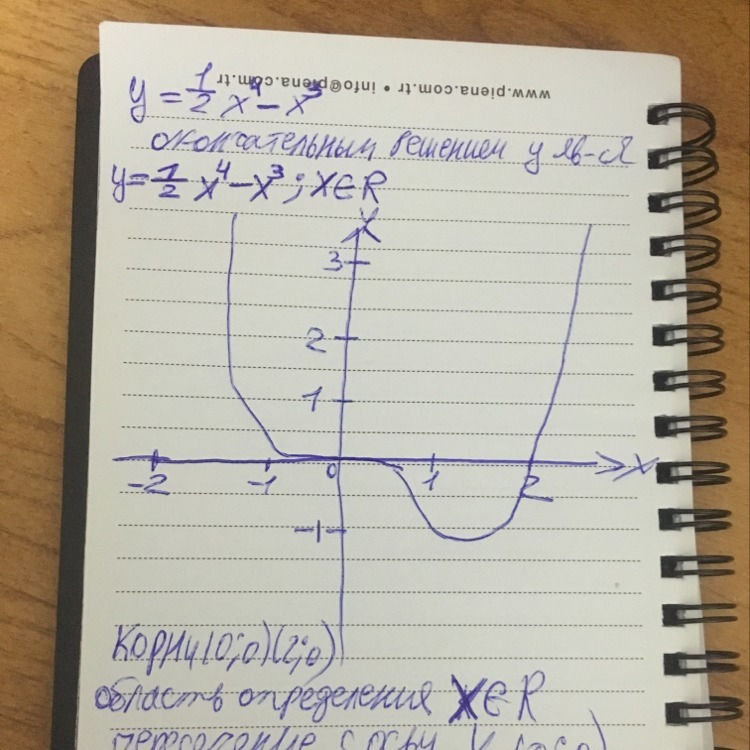 www.piena.com.tr • info@piena.com.tr
y = 1/2 x⁴ - x³
окончательным решением y яв-ся
y = 1/2 x⁴ - x³ ; x ∈ R
X
3
2
1
-2 -1 0 1 2 X
-1
Корни (0;0) (2;0)
область определения X ∈ R